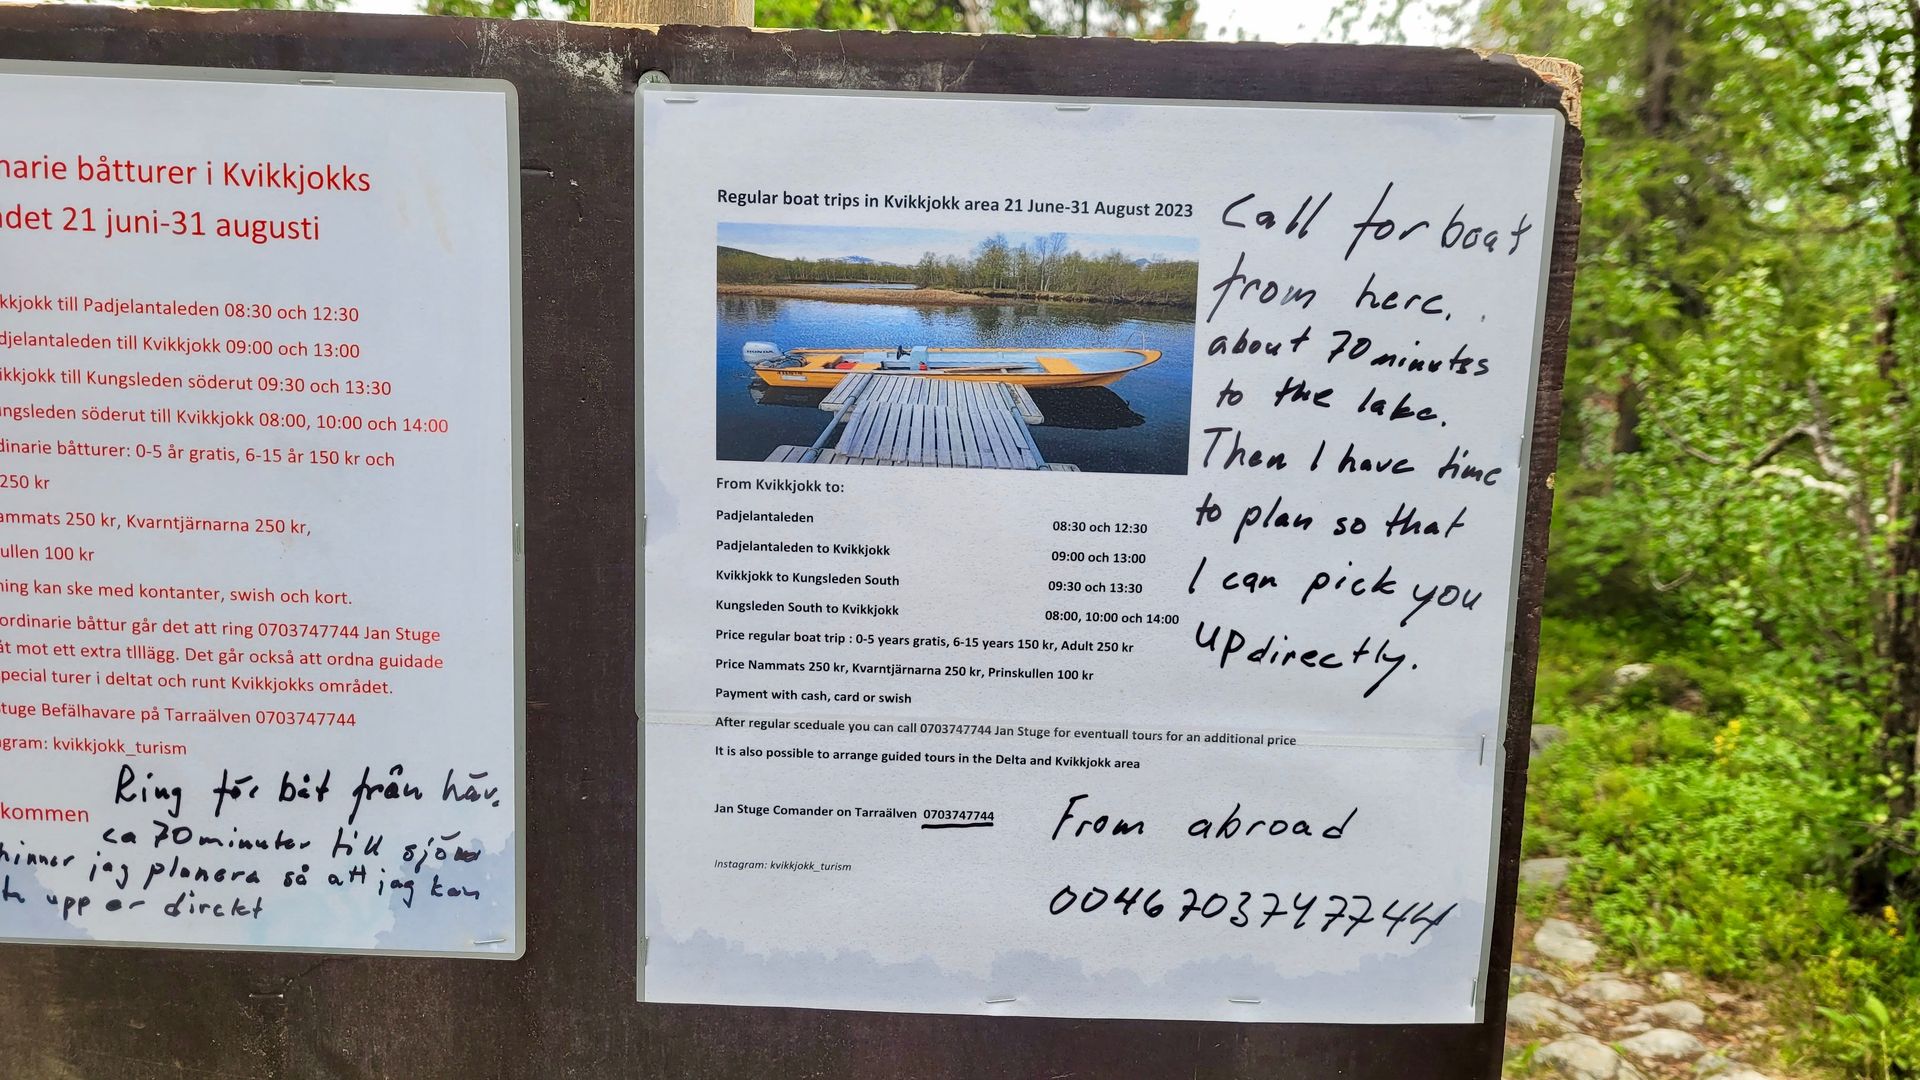 båtturer i Kvikkjokks
21 juni-31 augusti
till Padjelantaleden 08:30 och 12:30
till Kvikkjokk 09:00 och 13:00
till Kungsleden söderut 09:30 och 13:30
söderut till Kvikkjokk 08:00, 10:00 och 14:00
båtturer: 0-5 år gratis, 6-15 år 150 kr och
250 kr
250 kr, Kvarntjärnarna 250 kr,
100 kr
kan ske med kontanter, swish och kort.
ordinarie båttur går det att ring 0703747744 Jan Stuge
mot ett extra tlllägg. Det går också att ordna guidade
special turer i deltat och runt Kvikkjokks området.
Stuge Befälhavare på Tarraälven 0703747744
kvikkjokk_turism
kommen
Ring för båt från här.
ca 70 minuter till sjön
hinner jag planera så att jag kan
upp er direkt
Regular boat trips in Kvikkjokk area 21 June-31 August 2023
HONDA
From Kvikkjokk to:
Padjelantaleden 08:30 och 12:30
Padjelantaleden to Kvikkjokk 09:00 och 13:00
Kvikkjokk to Kungsleden South 09:30 och 13:30
Kungsleden South to Kvikkjokk 08:00, 10:00 och 14:00
Price regular boat trip : 0-5 years gratis, 6-15 years 150 kr, Adult 250 kr
Price Nammats 250 kr, Kvarntjärnarna 250 kr, Prinskullen 100 kr
Payment with cash, card or swish
After regular sceduale you can call 0703747744 Jan Stuge for eventuall tours for an additional price
It is also possible to arrange guided tours in the Delta and Kvikkjokk area
Jan Stuge Comander on Tarraälven 0703747744
Instagram: kvikkjokk_turism
Call for boat
from here.
about 70 minutes
to the lake.
Then I have time
to plan so that
I can pick you
up directly.
From abroad
0046703747744